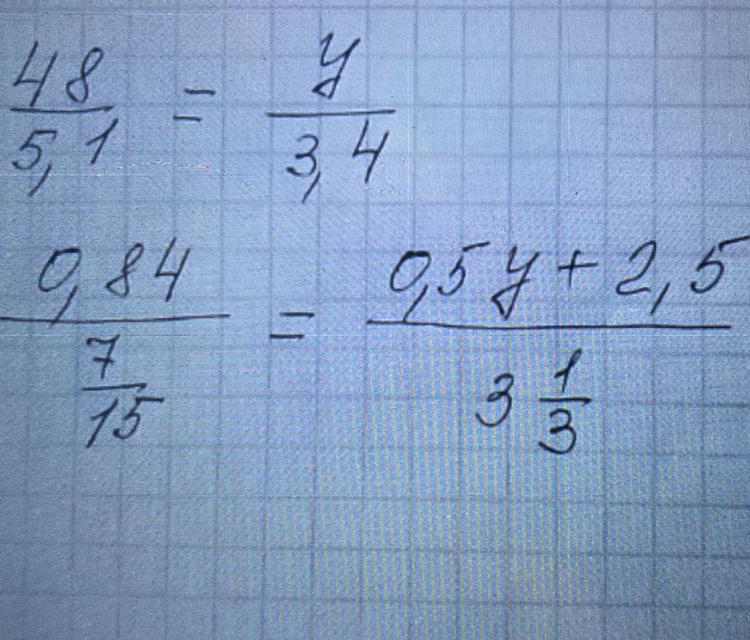 48/5,1 = y/3,4
0,84/(7/15) = (0,5y + 2,5)/(3 1/3)